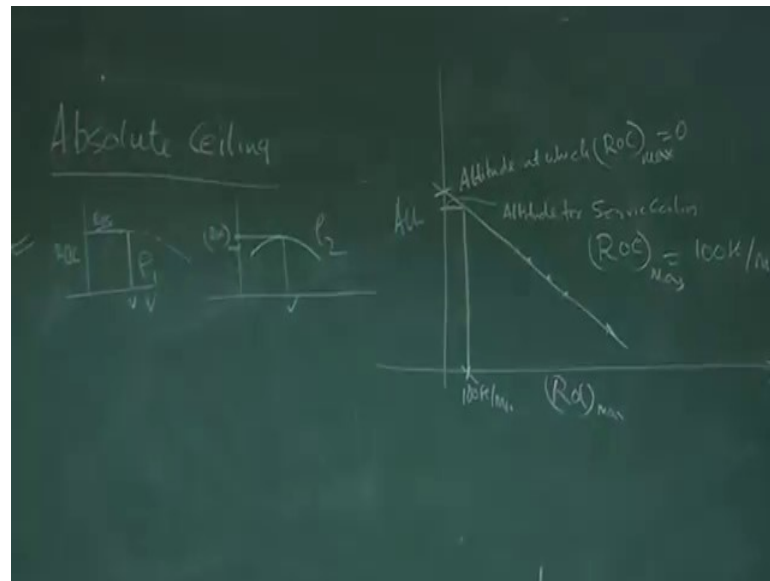 Absolute Ceiling
ROC
ρ1
V V
ρ2
V
Altitude at which (ROC)max = 0
Alt
Altitude for Service Ceiling
(ROC)max = 100ft/m
100ft/min
(ROC)max